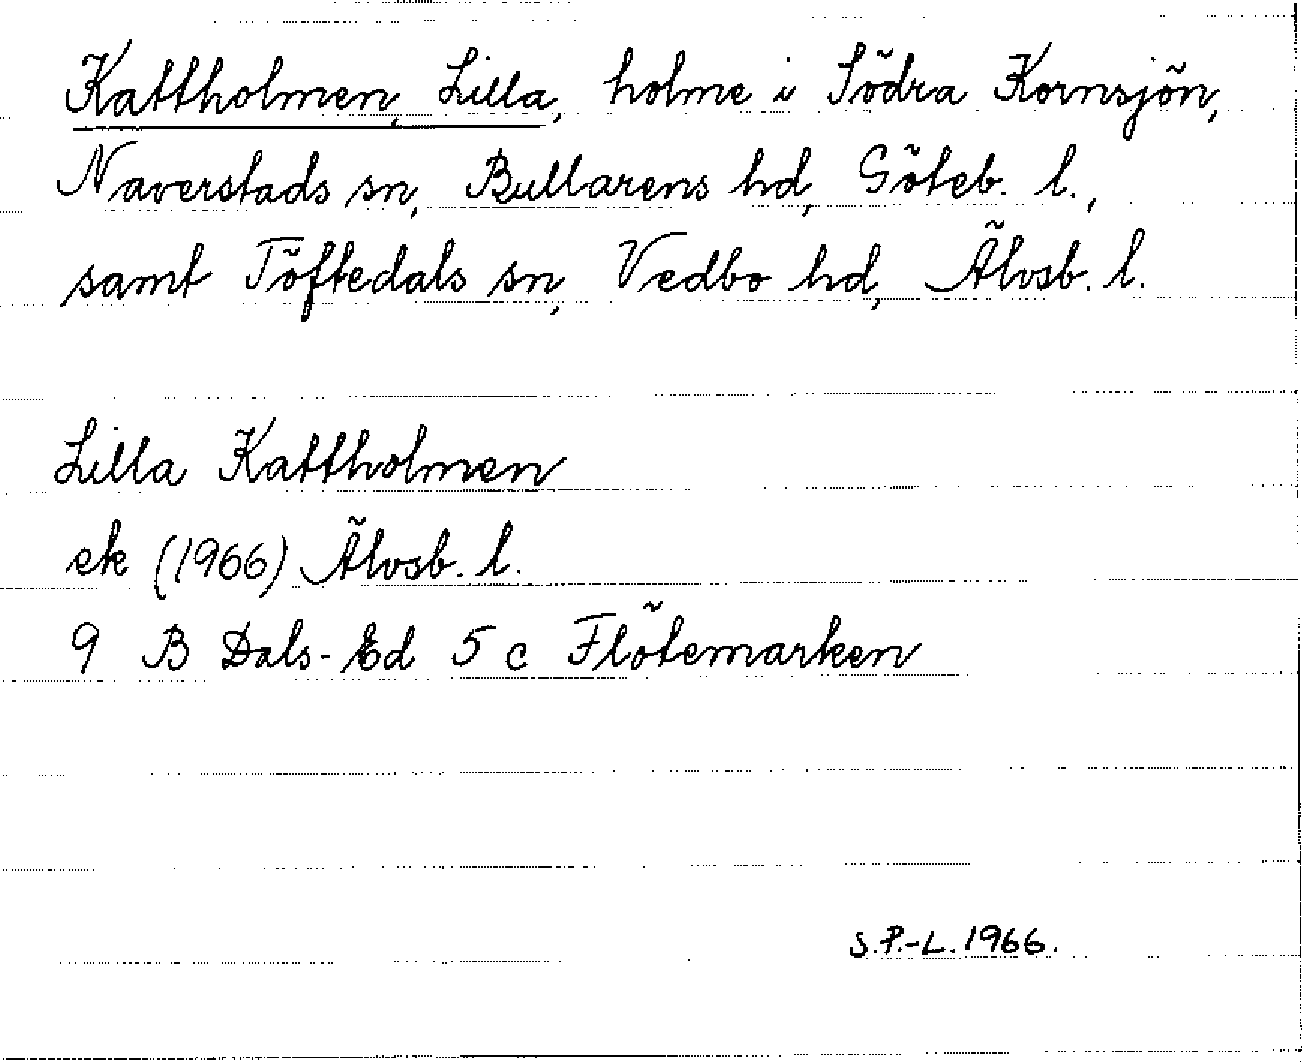 Kattholmen, Lilla, holme i Södra Kornsjön,
Naverstads sn, Bullarens hd, Göteb. l.,
samt Töftedals sn, Vedbo hd, Älvsb. l.
Lilla Kattholmen
ek (1966) Älvsb. l.
9 B Dals-Ed 5 c Flötemarken
S.P.-L. 1966.